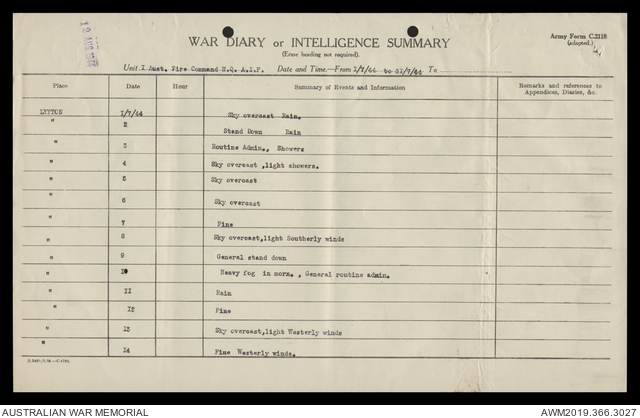 12 AUG
Army Form C.2118
WAR DIARY or INTELLIGENCE SUMMARY
(adapted.)
(Erase heading not required).
Unit I Aust. Fire Command H.Q. A.I.F. Date and Time.—From 1/7/44 to 31/7/44 To
Place Date Hour Summary of Events and Information Remarks and references to Appendices, Diaries, &c.
LYTTON 1/7/44 Sky overcast Rain.
" 2 Stand Down Rain
" 3 Routine Admin., Showers
" 4 Sky overcast ,light showers.
" 5 Sky overcast
" 6 Sky overcast
" 7 Fine
" 8 Sky overcast,light Southerly winds
" 9 General stand down
" 10 Heavy fog in morn. , General routine admin.
" 11 Rain
" 12 Fine
" 13 Sky overcast,light Westerly winds
" 14 Fine Westerly winds.
AUSTRALIAN WAR MEMORIAL AWM2019.366.3027